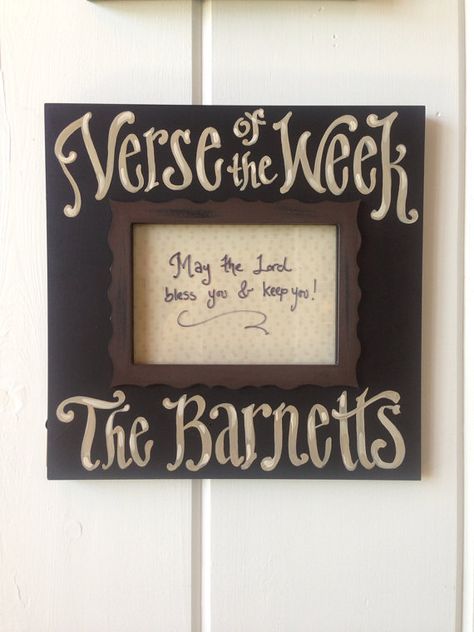 Verse of the Week
May the Lord
bless you & keep you!
The Barnetts